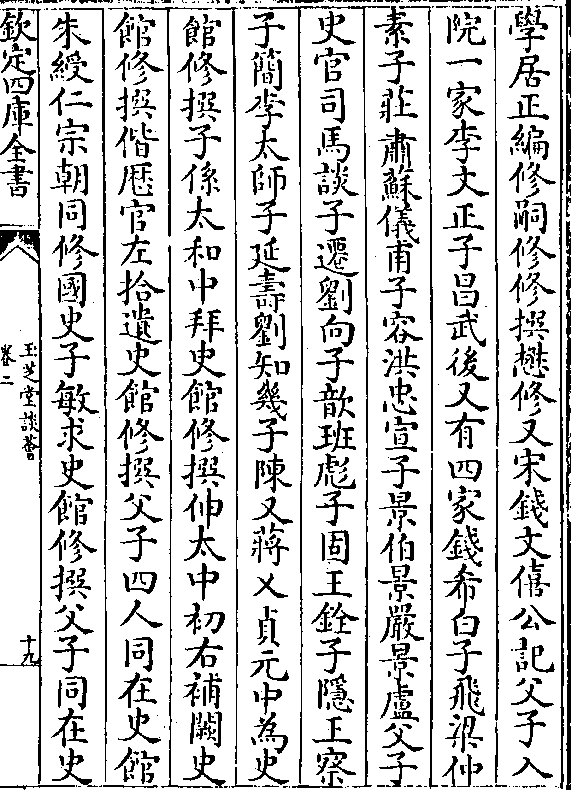 學居正編修嗣修修撰懋修又宋錢文僖公記父子入
院一家李文正子昌武後又有四家錢希白子飛梁仲
素子莊肅蘇儀甫子容洪忠宣子景伯景嚴景盧父子
史官司馬談子遷劉向子歆班彪子固王銓子隱王察
子簡李太師子延壽劉知幾子陳又蔣乂貞元中為史
館修撰子係太和中拜史館修撰伸太中初右補闕史
館修撰偕歴官左拾遺史館修撰父子四人同在史館
朱綬仁宗朝同修國史子敏求史館修撰父子同在史
欽定四庫全書
玉芝堂談薈
卷二
十九